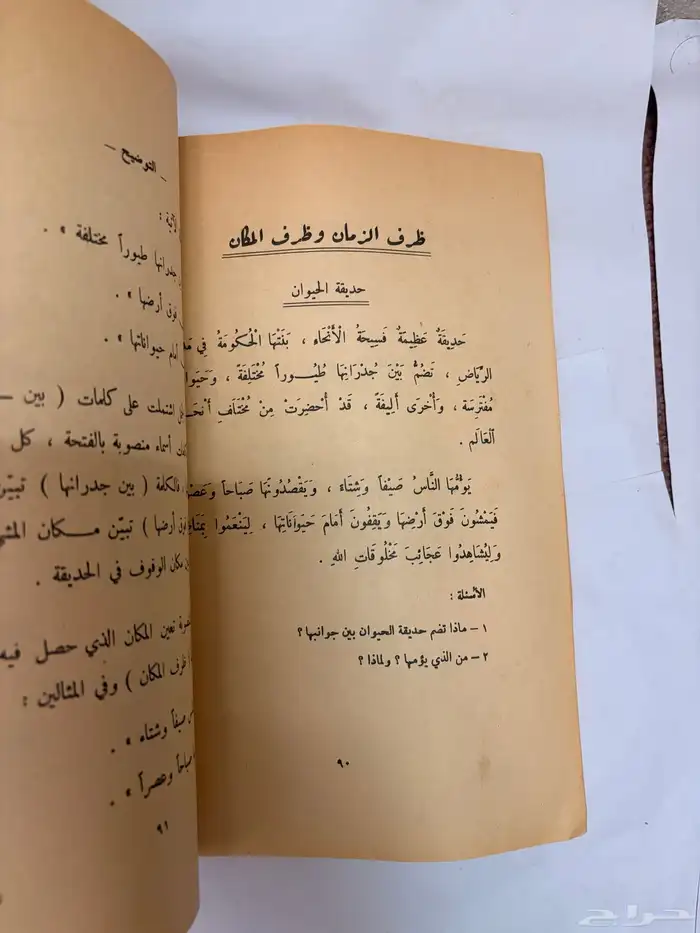 ظرف الزمان وظرف المكان
حديقة الحيوان
حَدِيقَةٌ عَظِيمَةٌ فَسِيحَةُ الْأَنْحَاءِ ، بَنَتْهَا الْحُكُومَةُ فِي
الرِّيَاضِ ، تَضُمُّ بَيْنَ جُدْرَانِهَا طُيُوراً مُخْتَلِفَةً ،
مُفْتَرِسَة ، وَأُخْرَى أَلِيفَةً ، قَدْ أُحْضِرَتْ مِنْ مُخْتَلَفِ
الْعَالَم .
يَؤُمُّهَا النَّاسُ صَيْفاً وَشِتَاء ، وَيَقْصُدُونَهَا صَبَاحاً
فَيَمْشُونَ فَوْقَ أَرْضِهَا وَيَقِفُونَ أَمَامَ حَيَوَانَاتِهَا ، لِيَنْعَمُوا
وَلِيُشَاهِدُوا عَجَائِبَ مَخْلُوقَاتِ اللهِ .
الأسئلة :
١ – ماذا تضم حديقة الحيوان بين جوانبها ؟
٢ – من الذي يؤمها ؟ ولماذا ؟
٩٠
– التوضيح –
جدرانها طيوراً مختلفة » .
فوق أرضها » .
أمام حيواناتها » .
اشتملت على كلمات ( بين –
أسماء منصوبة بالفتحة ، كل
فالكلمة ( بين جدرانها ) تبيّن
أرضها ) تبيّن مكان
مكان الوقوف في الحديقة .
تعين المكان الذي حصل فيه
ظرف المكان ) وفي المثالين :
صيفاً وشتاء » .
صباحاً وعصراً » .
٩١
حراج